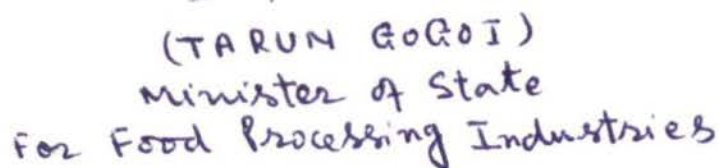 (TARUN GOGOI)
Minister of State
For Food Processing Industries